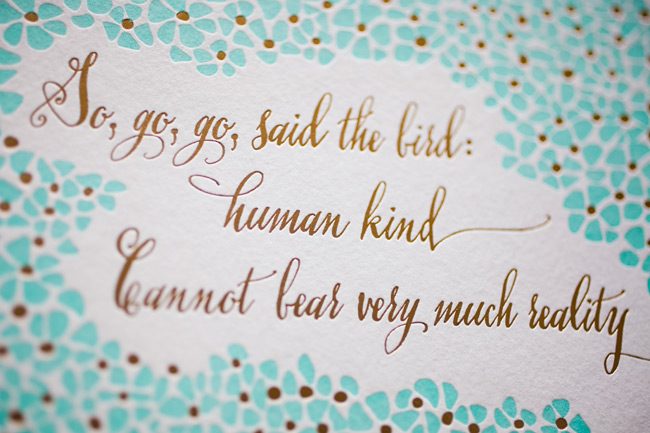 So, go, go, said the bird:
human kind
Cannot bear very much reality